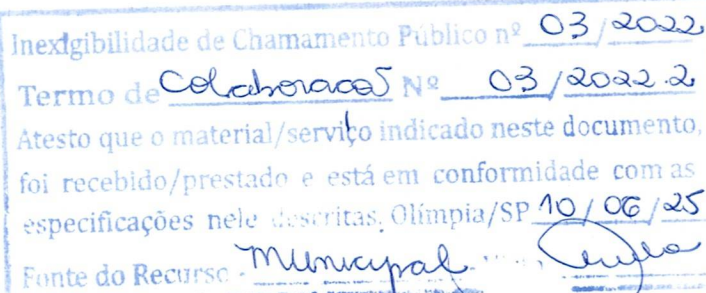 Inexigibilidade de Chamamento Público nº 03/2022
Termo de Colaboração Nº 03/2022.2
Atesto que o material/serviço indicado neste documento,
foi recebido/prestado e está em conformidade com as
especificações nele descritas. Olímpia/SP 10/06/25
Fonte do Recurso - Municipal